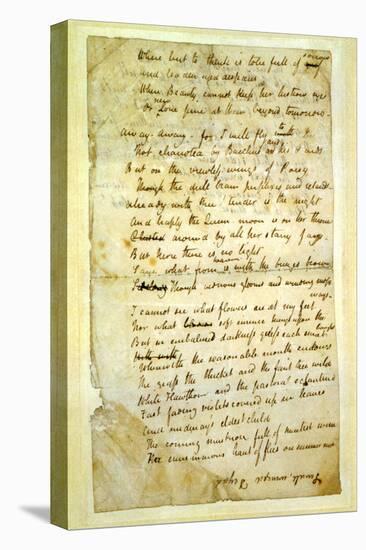 Where but to think is to be full of sorrow
and leaden eyed despairs
Where Beauty cannot keep her lustrous eyes
Or new Love pine at them beyond tomorrow
Away-away- for I will fly to thee
Not charioted by Bacchus and his Pards
But on the viewless wings of Poesy
Though the dull brain perplexes and retards
Already with thee tender is the night
And haply the Queen moon is on her throne
Cluster'd around by all her starry fays
But here there is no light
Save what from heaven is with the breezes blown
Though verdurous glooms and winding mossy
ways
I cannot see what flowers are at my feet
Nor what soft incense hangs upon the
boughs
But in embalmed darkness guess each sweet
With with
Wherewith the seasonable month endows
The grass the thicket and the fruit tree wild
White Hawthorn and the pastoral eglantine
Fast fading violets covered up in leaves
And midmay's eldest child
The coming muskrose full of sweetest wine
The murmurous haunt of flies on summer eves
Small, winged Dryad